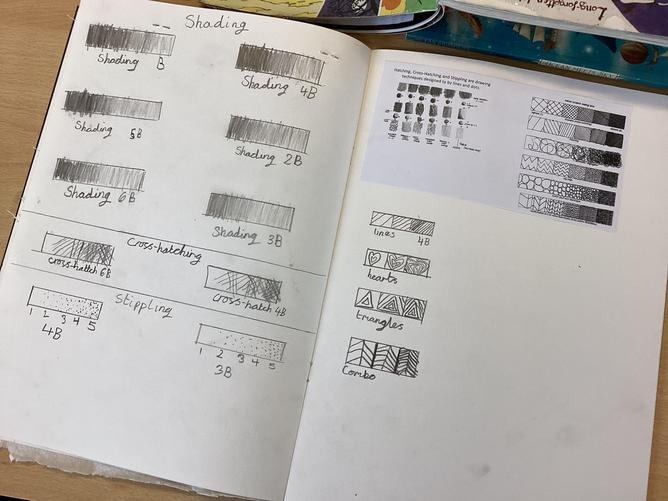 Shading
Shading B
Shading 4B
Shading 5B
Shading 2B
Shading 6B
Shading 3B
Cross-hatching
cross-hatch 6B
cross-hatch 4B
Stippling
1 2 3 4 5
4B
1 2 3 4 5
3B
Hatching, Cross-Hatching and Stippling are drawing
techniques designed to by lines and dots.
lines 4B
hearts
triangles
Combo
Long-forgotten